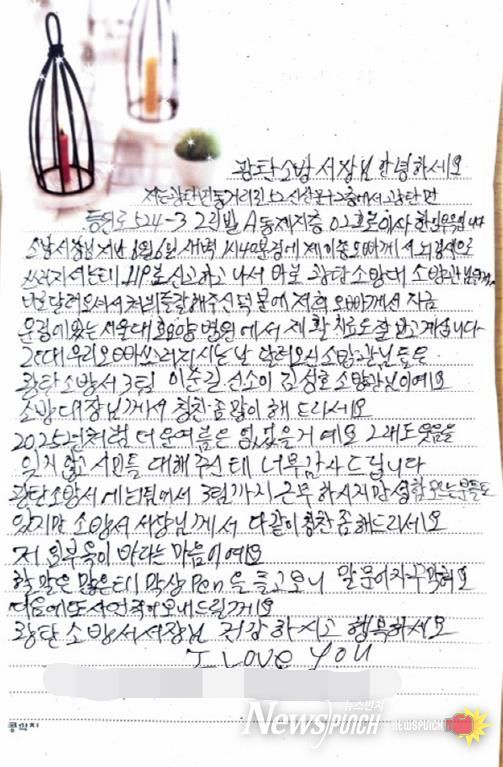 광탄소방서장님 안녕하세요
저는 광탄면
등원로 524-3 A동 02호로 이사한
소방서장님 지난 1월 6일 새벽 1시 40분경에 제 오빠께서 뇌경색으로
쓰러지셔는데 119로 신고하고 나서 바로 광탄소방대 소방관님
달려오셔서 처치를 잘해주신 덕분에 저희 오빠께서 지금
운정에 있는 서울대효요양병원에서 재활치료도 잘 받고 계십니다
그런대 우리오빠 쓰러지시는 날 달려오신 소방관님들은
광탄소방서 3팀 이순길 김성호 소방관님이예요
소방대장님께서 칭찬 좀 많이 해 드리세요
2025년처럼 더운여름은 없었을거예요 그래도 웃음을
잊지않고 시민들 대해주신테 너무감사드립니다
광탄소방서 에서 3팀까지 근무하시지만 성함 모르는분들도
있지만 소방서 서장님께서 다같이 칭찬좀 해드리세요
저 바라는 마음이예요
할말은 많은데 막상 Pen을 들고보니 말문이
다음에또 보내드릴게요
광탄 소방서서장님 건강하시고 행복하세요
I LOVE YOU
공학지
뉴스펀치
NewsPUNCH
NEWSPUNCH